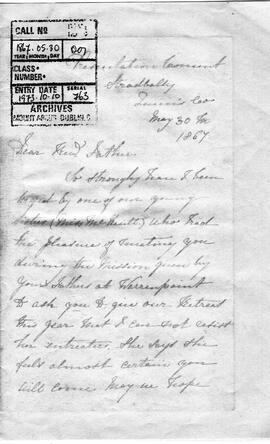 CALL NO
1867.05.30
YEAR, MONTH, DAY
CLASS
NUMBER
ENTRY DATE
SERIAL
1973-10-10
763
ARCHIVES
MOUNT ARGUS DUBLIN 6
Presentation Convent
Stradbally
Queen's Co
May 30th
1867
Dear Rev Father
So strongly have I been
urged by one of our young
ladies (Miss McNault) who had
the pleasure of meeting you
during the Mission given by
your Fathers at Warrenpoint
to ask you to give our Retreat
this year that I can not resist
her entreaties, She says she
feels almost certain you
will come May we hope